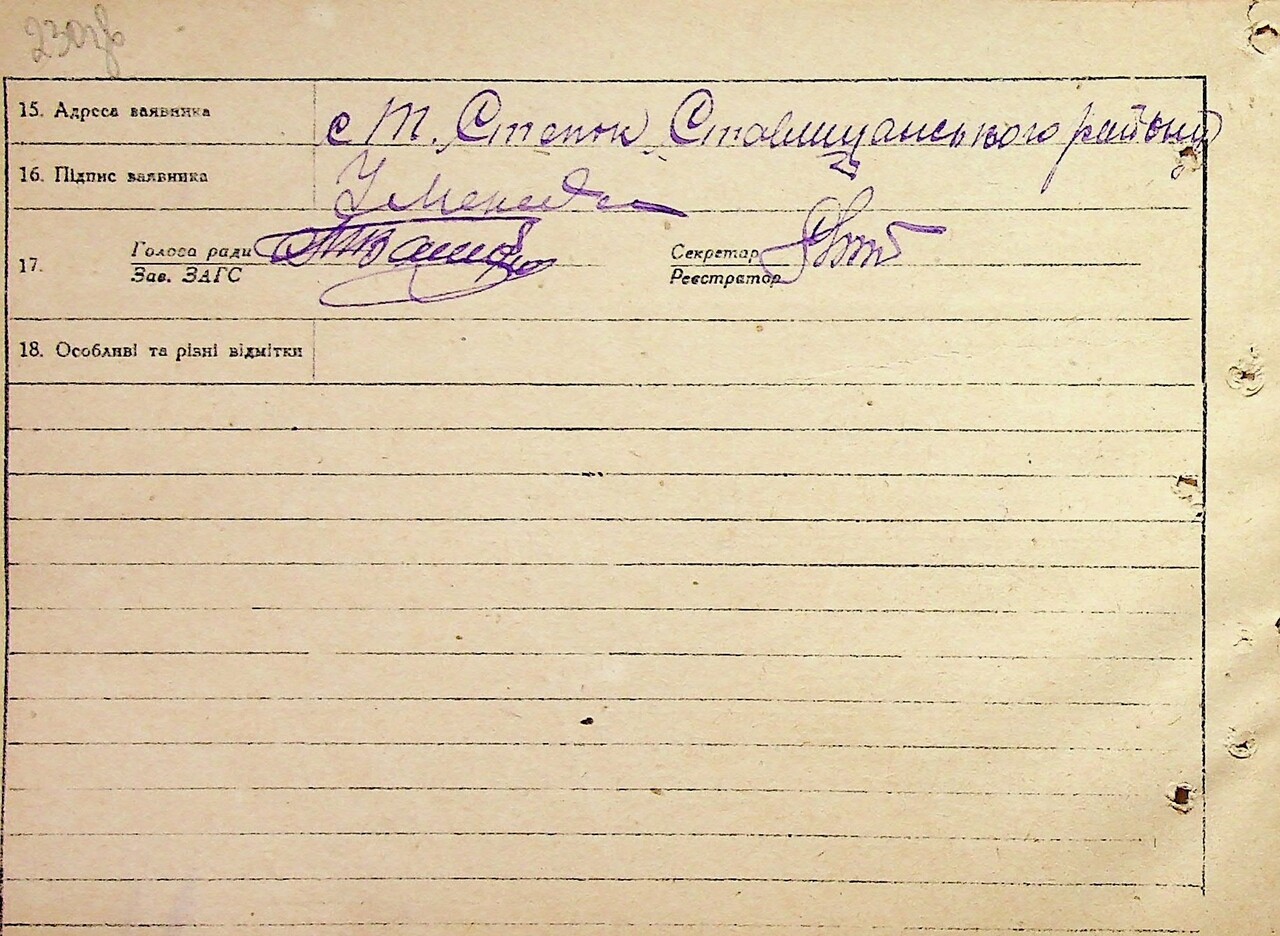 230зв
15. Адреса заявника
с Т. Степок Ставищанського району
16. Підпис заявника
17.
Голова ради
Зав. ЗАГС
Секретар
Реєстратор
18. Особливі та різні відмітки